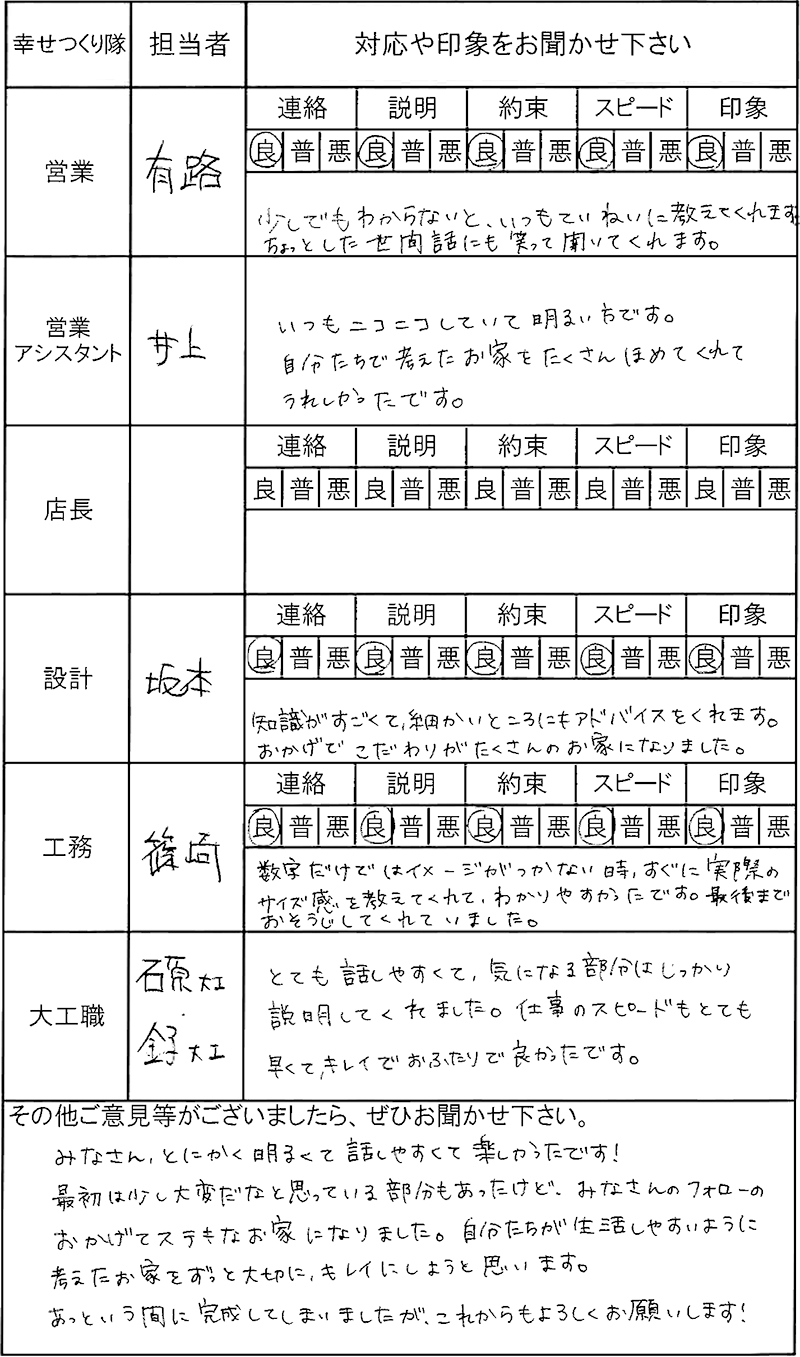 幸せつくり隊 担当者 対応や印象をお聞かせ下さい
営業 有路
連絡 説明 約束 スピード 印象
良 普 悪 良 普 悪 良 普 悪 良 普 悪 良 普 悪
少しでもわからないと、いつもていねいに教えてくれます。
ちょっとした世間話にも笑って聞いてくれます。
営業
アシスタント
井上
いつもニコニコしていて明るい方です。
自分たちで考えたお家をたくさんほめてくれて
うれしかったです。
店長
連絡 説明 約束 スピード 印象
良 普 悪 良 普 悪 良 普 悪 良 普 悪 良 普 悪
設計 坂本
連絡 説明 約束 スピード 印象
良 普 悪 良 普 悪 良 普 悪 良 普 悪 良 普 悪
知識がすごくて、細かいところにもアドバイスをくれます。
おかげでこだわりがたくさんのお家になりました。
工務 篠崎
連絡 説明 約束 スピード 印象
良 普 悪 良 普 悪 良 普 悪 良 普 悪 良 普 悪
数字だけではイメージがつかない時、すぐに実際の
サイズ感を教えてくれて、わかりやすかったです。最後まで
おそうじしてくれていました。
大工職
石原大工
金子大工
とても話しやすくて、気になる部分はしっかり
説明してくれました。仕事のスピードもとても
早くて、キレイでおふたりで良かったです。
その他ご意見等がございましたら、ぜひお聞かせ下さい。
みなさん、とにかく明るくて話しやすくて楽しかったです!
最初は少し大変だなと思っている部分もあったけど、みなさんのフォローの
おかげでステキなお家になりました。自分たちが生活しやすいように
考えたお家をずっと大切に、キレイにしようと思います。
あっという間に完成してしまいましたが、これからもよろしくお願いします!